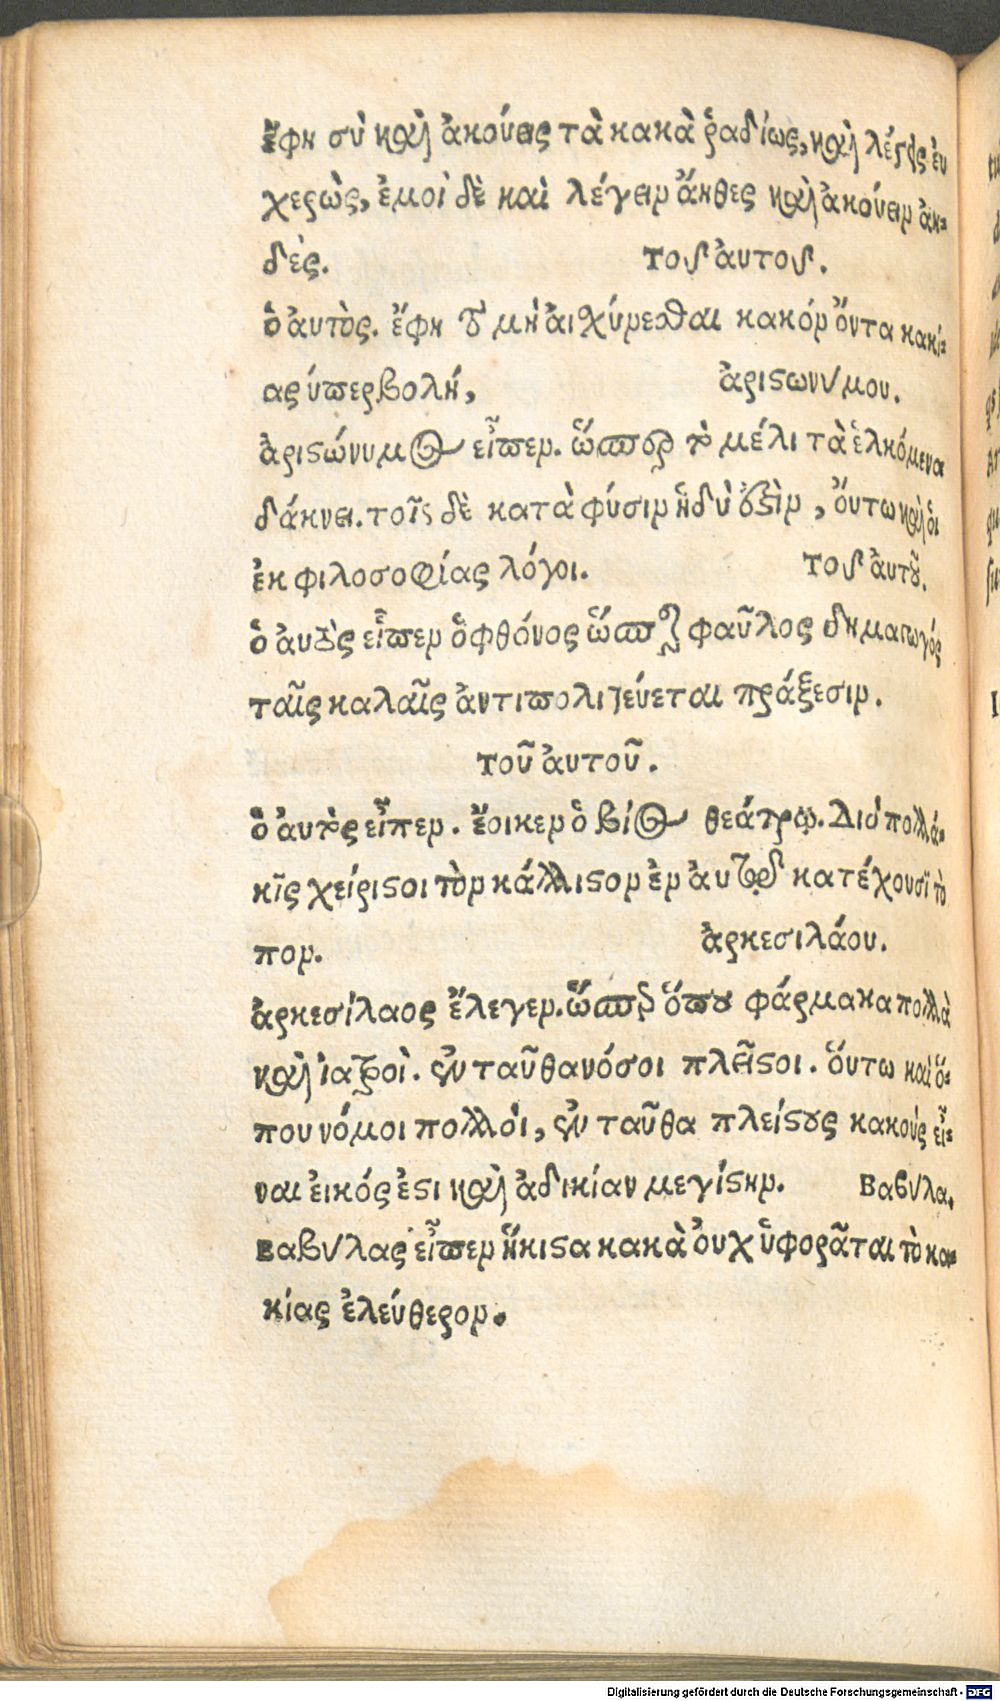 ἔφη σὺ καὶ ἀκούεις τὰ κακὰ ῥαδίως, καὶ λέγεις ἐυ
χερῶς, ἐμοὶ δὲ καὶ λέγειν ἄηθες καὶ ἀκούειν ἀη-
δές. Τοῦ ἀυτοῦ.
ὁ ἀυτὸς. ἔφη τοῦ μὴ ἀισχύνεσθαι κακὸν ὄντα κακί-
ας ὑπερβολή, ἀριστωνύμου.
ἀριστώνυμος εἶπεν. ὥσπερ τὸ μέλι τὰ ἑλκόμενα
δάκνει. τοῖς δὲ κατὰ φύσιν ἡδὺ ὀξὶν, ὄυτω καὶ ὁι
ἐκ φιλοσοφίας λόγοι. Τοῦ ἀυτοῦ.
ὁ ἀυτὸς εἶπεν ὁ φθόνος ὥσπερ φαῦλος δημαγωγός
ταῖς καλαῖς ἀντιπολιτεύεται πράξεσιν.
Τοῦ ἀυτοῦ.
ὁ ἀυτὸς εἶπεν. ἔοικεν ὁ βίος θεάτρῳ. Διὸ πολλά-
κις χείριστοι τὸν κάλλιστον ἐν ἀυτῷ κατέχουσι τό
πον. ἀρκεσιλάου.
ἀρκεσίλαος ἔλεγεν. ὥσπερ ὅπου φάρμακα πολλὰ
καὶ ἰατροὶ. ἐνταῦθα νόσοι πλεῖστοι. ὅυτω καὶ ὅ-
που νόμοι πολλοὶ, ἐνταῦθα πλείστους κακοὺς εἶ-
ναι ἐικός ἐστι καὶ ἀδικίαν μεγίστην. Βαβύλα.
Βαβύλας εἶπεν ἥκιστα κακὰ ὀυχ ὑφορᾶται τὸ κα-
κίας ἐλεύθερον.
Digitalisierung gefördert durch die Deutsche Forschungsgemeinschaft - DFG